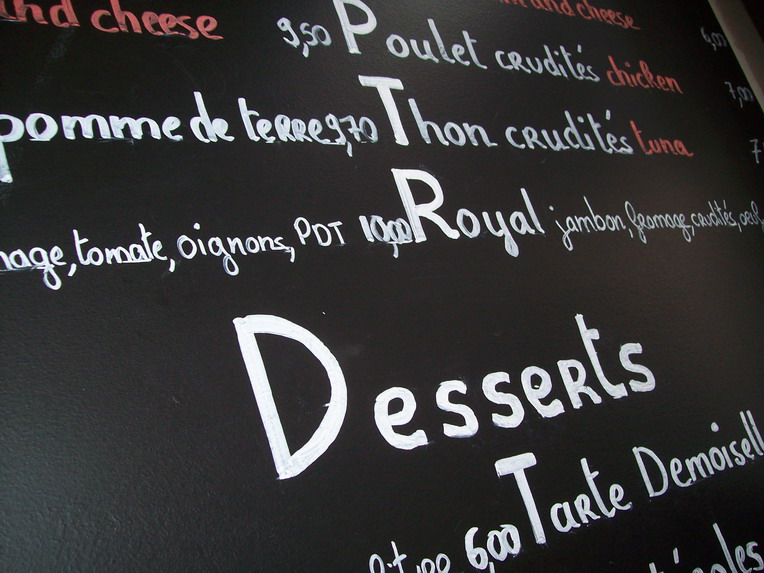 and cheese 9,50 Poulet crudités chicken 7,00
and cheese 6,00
pomme de terre 9,70 Thon crudités tuna
tomate, oignons, PDT 10,00 Royal jambon, fromage, crudités, oeuf
Desserts
6,00 Tarte Demoisell